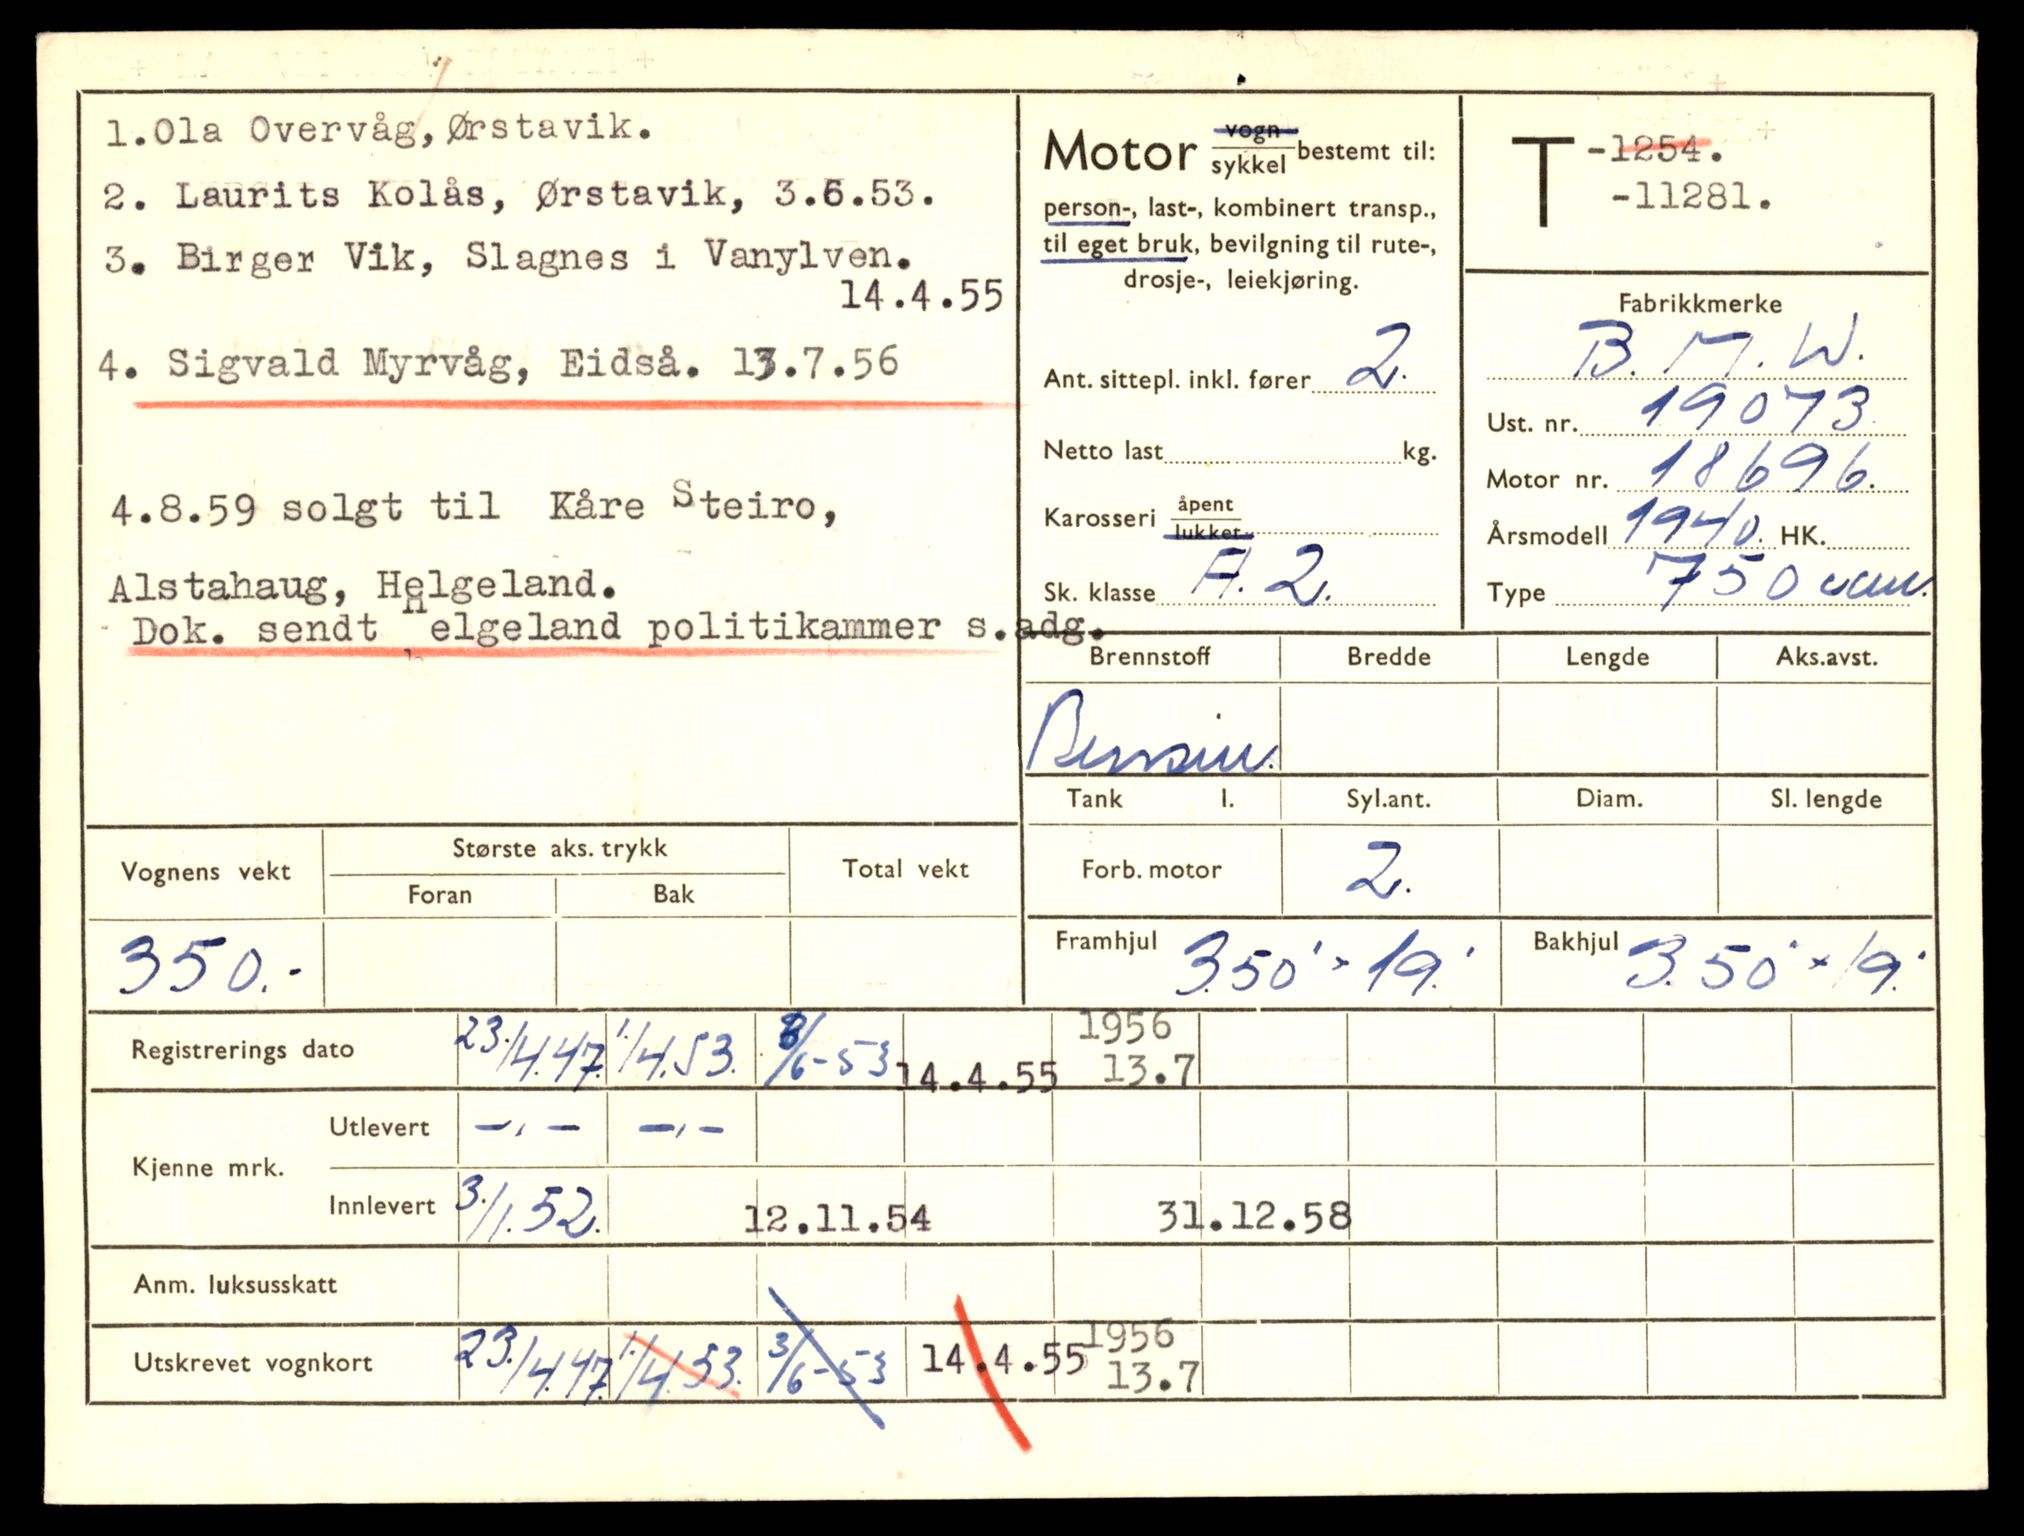 1.Ola Overvåg,Ørstavik.
2. Laurits Kolås, Ørstavik, 3.6.53.
3. Birger Vik, Slagnes i Vanylven.
14.4.55
4. Sigvald Myrvåg, Eidså. 13.7.56
4.8.59 solgt til Kåre Steiro,
Alstahaug, Helgeland.
Dok. sendt Helgeland politikammer s.adg.
Motor vogn/sykkel bestemt til:
person-, last-, kombinert transp.,
til eget bruk, bevilgning til rute-,
drosje-, leiekjøring.
Ant. sittepl. inkl. fører 2.
Netto last kg.
Karosseri åpent/lukket
Sk. klasse A. 2.
T -1254.
-11281.
Fabrikkmerke
B. M. W.
Ust. nr. 19073
Motor nr. 18696.
Årsmodell 1940. HK.
Type 750 ccm.
Brennstoff Bredde Lengde Aks.avst.
Bensin.
Tank l. Syl.ant. Diam. Sl. lengde
Forb. motor 2.
Framhjul 3.50' × 19.' Bakhjul 3.50' × 19.'
Vognens vekt Største aks. trykk Total vekt
Foran Bak
350.-
Registrerings dato 23./4.47. 1./4.53. 8/6-53 14.4.55 1956 13.7
Kjenne mrk. Utlevert —,,— —,,—
Innlevert 3./1.52. 12.11.54 31.12.58
Anm. luksusskatt
Utskrevet vognkort 23./4.47. 1./4.53. 3/6-53 14.4.55 1956 13.7